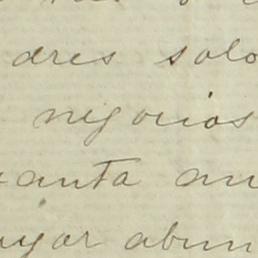 dres solo
negocios
anta an
ayor abun